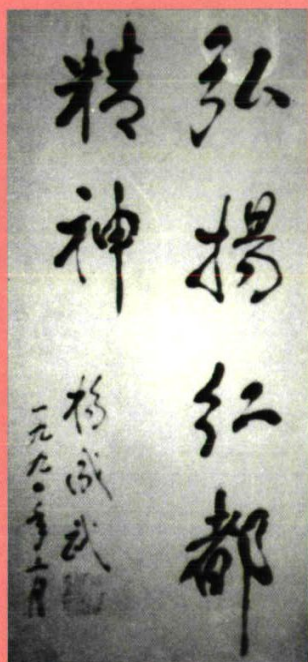 弘揚红都
精神
杨成武
一九九〇年三月